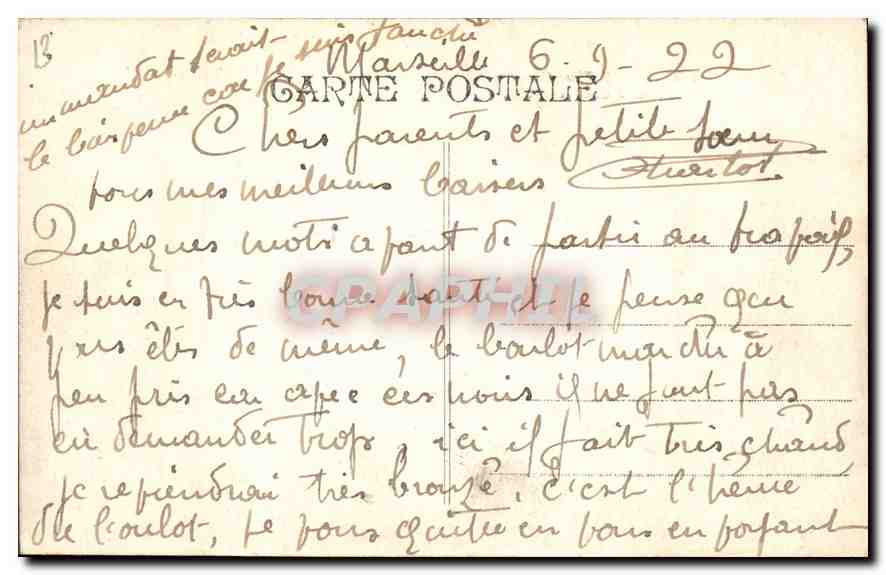 13
un mandat serait
le bas pense car je suis fauché
Marseille 6-9-22
CARTE POSTALE
Chers parents et petite soeur
tous mes meilleurs baisers
Quelques mots avant de partir au
je suis en très bonne santé et je pense que
vous êtes de même, le boulot marche à
peu près car avec ces noirs il ne faut pas
en demander trop, ici il fait très chaud
je reviendrai très bronzé, c'est l'heure
du boulot, je vous quitte en vous envoyant
CPAPHIL